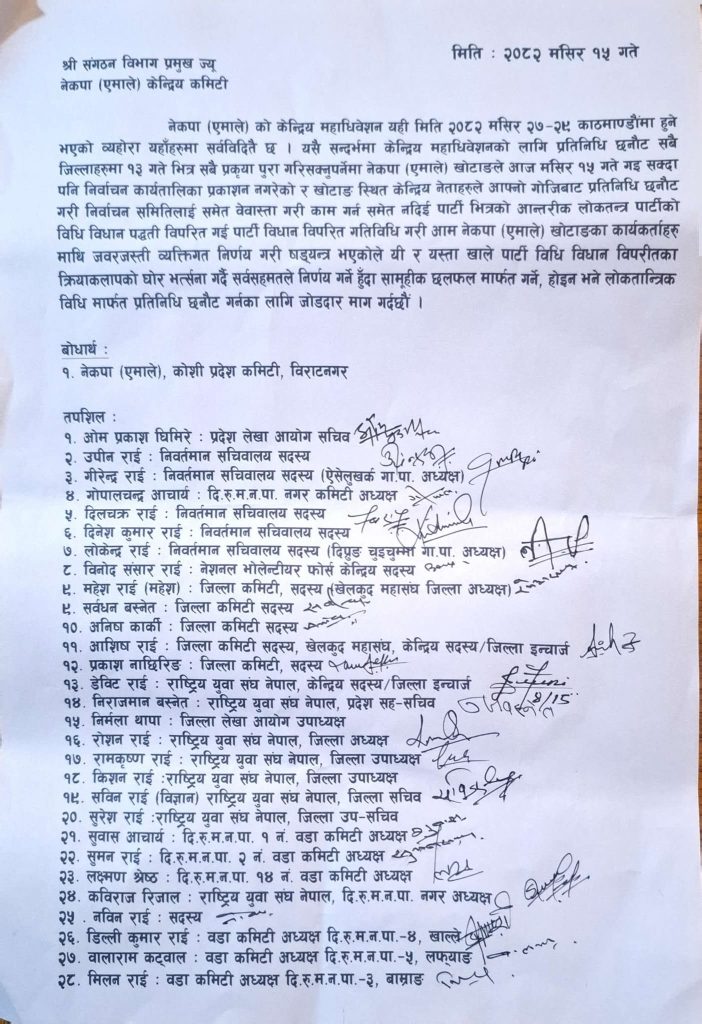 मिति : २०८२ मसिर १५ गते
श्री संगठन विभाग प्रमुख ज्यू
नेकपा (एमाले) केन्द्रिय कमिटी
नेकपा (एमाले) को केन्द्रिय महाधिवेशन यही मिति २०८२ मसिर २७-२९ काठमाण्डौंमा हुने
भएको व्यहोरा यहाँहरुमा सर्वविदितै छ । यसै सन्दर्भमा केन्द्रिय महाधिवेशनको लागि प्रतिनिधि छनौट सबै
जिल्लाहरुमा १३ गते भित्र सबै प्रकृया पुरा गरिसक्नुपर्नेमा नेकपा (एमाले) खोटाङले आज मसिर १५ गते गइ सक्दा
पनि निर्वाचन कार्यतालिका प्रकाशन नगरेको र खोटाङ स्थित केन्द्रिय नेताहरुले आफ्नो गोजिबाट प्रतिनिधि छनौट
गरी निर्वाचन समितिलाई समेत वेवास्ता गरी काम गर्न समेत नदिई पार्टी भित्रको आन्तरीक लोकतन्त्र पार्टीको
विधि विधान पद्धती विपरित गई पार्टी विधान विपरित गतिविधि गरी आम नेकपा (एमाले) खोटाङका कार्यकर्ताहरु
माथि जवरजस्ती व्यक्तिगत निर्णय गरी षड्यन्त्र भएकोले यी र यस्ता खाले पार्टी विधि विधान विपरीतका
क्रियाकलापको घोर भर्त्सना गर्दै सर्वसहमतले निर्णय गर्ने हुँदा सामूहीक छलफल मार्फत गर्ने, होइन भने लोकतान्त्रिक
विधि मार्फत प्रतिनिधि छनौट गर्नका लागि जोडदार माग गर्दछौं ।
बोधार्थ :
१. नेकपा (एमाले), कोशी प्रदेश कमिटी, विराटनगर
तपशिल :
१. ओम प्रकाश घिमिरे : प्रदेश लेखा आयोग सचिव
२. उपीन राई : निवर्तमान सचिवालय सदस्य
३. गीरेन्द्र राई : निवर्तमान सचिवालय सदस्य (ऐसेलुखर्क गा.पा. अध्यक्ष)
४. गोपालचन्द्र आचार्य : दि.रु.म.न.पा. नगर कमिटी अध्यक्ष
५. दिलचक्र राई : निवर्तमान सचिवालय सदस्य
६. दिनेश कुमार राई : निवर्तमान सचिवालय सदस्य
७. लोकेन्द्र राई : निवर्तमान सचिवालय सदस्य (दिप्रुङ चुइचुम्मा गा.पा. अध्यक्ष)
८. विनोद संसार राई : नेशनल भोलेन्टियर फोर्स केन्द्रिय सदस्य
९. महेश राई (महेश) : जिल्ला कमिटी, सदस्य (खेलकुद महासंघ जिल्ला अध्यक्ष)
९. सर्वधन बस्नेत : जिल्ला कमिटी सदस्य
१०. अनिष कार्की : जिल्ला कमिटी सदस्य
११. आशिष राई : जिल्ला कमिटी सदस्य, खेलकुद महासंघ, केन्द्रिय सदस्य/जिल्ला इन्चार्ज
१२. प्रकाश नाछिरिङ : जिल्ला कमिटी, सदस्य
१३. डेविट राई : राष्टिय युवा संघ नेपाल, केन्द्रिय सदस्य/जिल्ला इन्चार्ज
१४. निराजमान बस्नेत : राष्ट्रिय युवा संघ नेपाल, प्रदेश सह-सचिव
१५. निर्मला थापा : जिल्ला लेखा आयोग उपाध्यक्ष
१६. रोशन राई : राष्ट्रिय युवा संघ नेपाल, जिल्ला अध्यक्ष
१७. रामकृष्ण राई : राष्ट्रिय युवा संघ नेपाल, जिल्ला उपाध्यक्ष
१८. किशन राई :राष्ट्रिय युवा संघ नेपाल, जिल्ला उपाध्यक्ष
१९. सविन राई (विज्ञान) राष्ट्रिय युवा संघ नेपाल, जिल्ला सचिव
२०. सुरेश राई :राष्ट्रिय युवा संघ नेपाल, जिल्ला उप-सचिव
२१. सुवास आचार्य : दि.रु.म.न.पा. १ नं. वडा कमिटी अध्यक्ष
२२. सुमन राई : दि.रु.म.न.पा. २ नं. वडा कमिटी अध्यक्ष
२३. लक्ष्मण श्रेष्ठ : दि.रु.म.न.पा. १४ नं. वडा कमिटी अध्यक्ष
२४. कविराज रिजाल : राष्ट्रिय युवा संघ नेपाल, दि.रु.म.न.पा. नगर अध्यक्ष
२५ . नविन राई : सदस्य
२६. डिल्ली कुमार राई : वडा कमिटी अध्यक्ष दि.रु.म.न.पा.-४, खाल्ले
२७. वालाराम कट्वाल : वडा कमिटी अध्यक्ष दि.रु.म.न.पा.-५, लफ्याङ
२८. मिलन राई : वडा कमिटी अध्यक्ष दि.रु.म.न.पा.-३, बाम्राङ